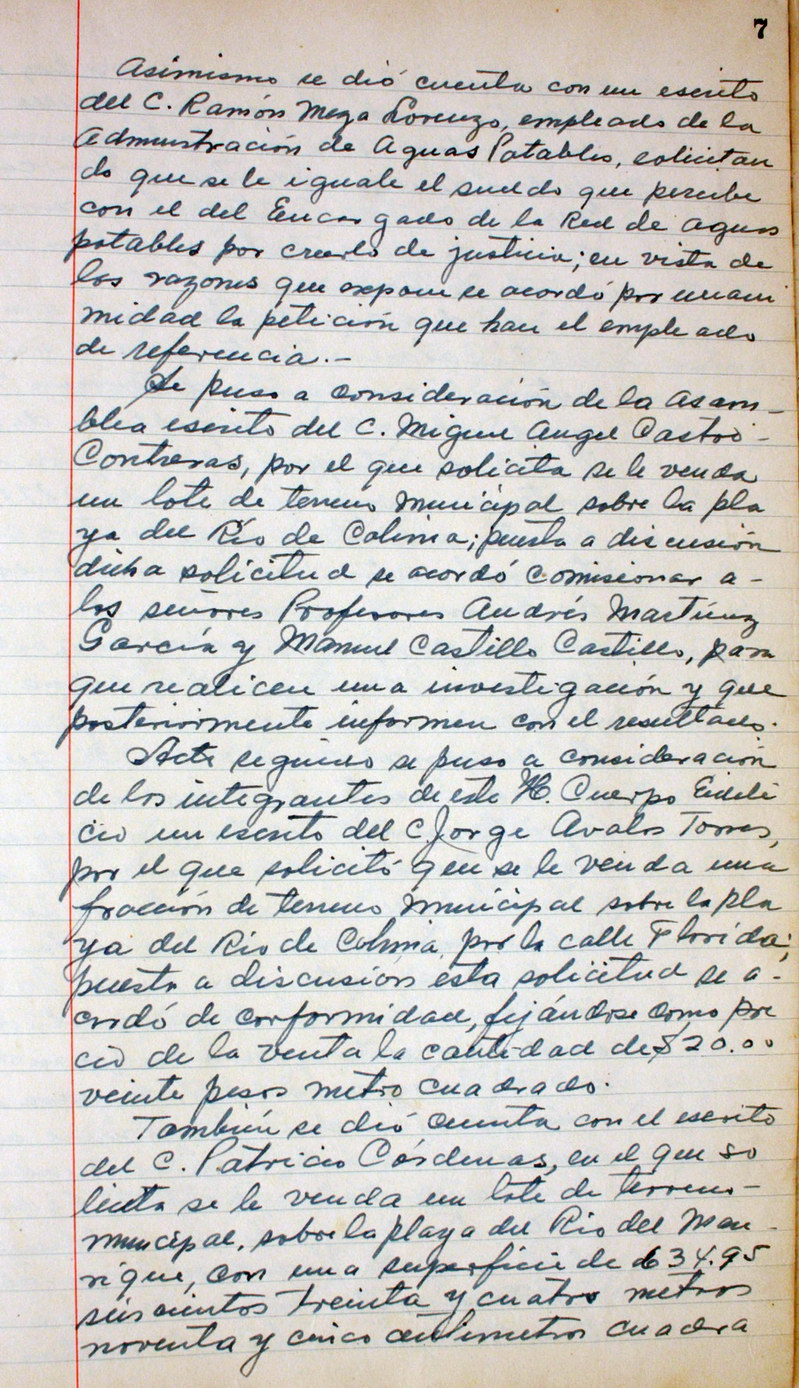 7
Asimismo se dió cuenta con un escrito
del C. Ramón Meza Lorenzo, empleado de la
Admnstración de Aguas Potables, solicitan
do que se le iguale el sueldo que percibe
con el del Encargado de la Red de aguas
potables por creerlo de justicia; en vista de
las razones que expone se acordó por unani
midad la petición que hace el empleado
de referencia.-
Se puso a consideración de la Asam-
blea escrito del C. Miguel Angel Castro-
Contreras, por el que solicita se le venda
un lote de terreno municipal sobre la pla
ya del Río de Colima; puesta a discusión
dicha solicitud se acordó comisionar a-
los señores Profesores Andrés Martínez
García y Manuel Castillo Castillo, para
que realicen una investigación y que
posteriormente informen con el resultado.
Acto seguido se puso a consideración
de los integrantes de este H. Cuerpo Edili
cio un escrito del C Jorge Avalos Torres,
por el que solicitó que se le venda una
fracción de terreno municipal sobre la pla
ya del Rio de Colima, por la calle Florida;
puesta a discusión esta solicitud se a-
cordó de conformidad, fijándose como pre
cio de la venta la cantidad de $20.00
veinte pesos metro cuadrado.
También se dió cuenta con el escrito
del C. Patricio Cárdenas, en el que so
licita se le venda un lote de terreno-
municipal, sobre la playa del Rio del Man-
rique, con una superficie de 634.95
seiscientos treinta y cuatro metros
noventa y cinco centímetros cuadra